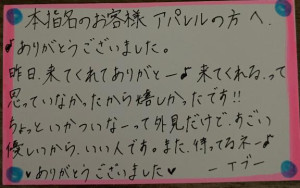 本指名のお客様 アパレルの方へ、
♪ありがとうございました。
昨日、来てくれてありがとー♪来てくれるって
思っていなかったから嬉しかったです!!
ちょっといかついなーって外見だけど、すごい
優しいから、いい人です。また、待ってるネー♪
♥ありがとうございました♥